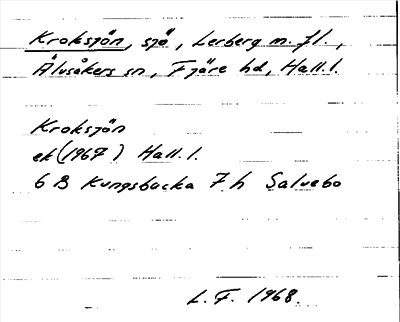 Kroksjön, sjö, Lerberg m. fl.,
Älvsåkers sn, Fjäre hd, Hall. l.
Kroksjön
ek (1967) Hall. l.
6 B Kungsbacka 7 h Saluebo
L. F. 1968.